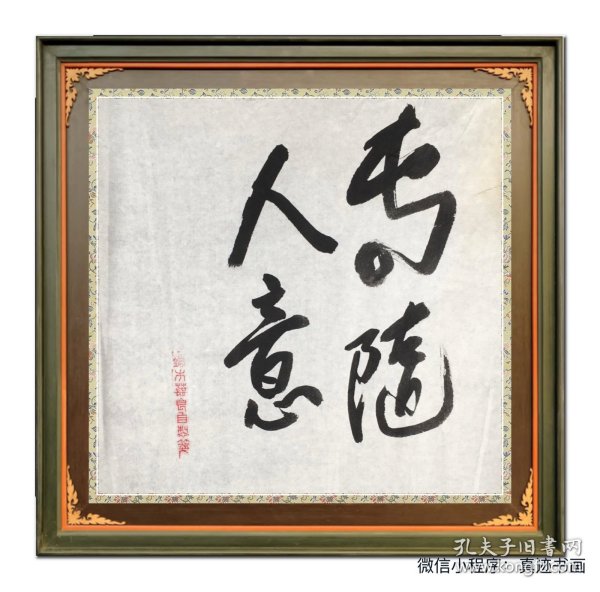 事随
人意
孔夫子旧书网
微信小程序：真迹书画